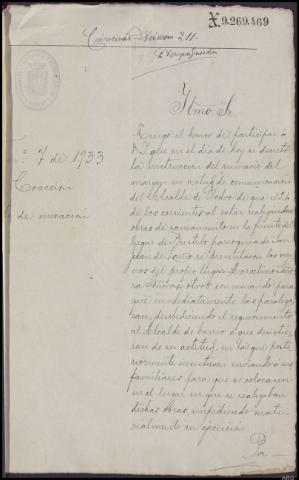 X.9.269.469
Criminal
211
Iltmo Sr.
Tengo el honor de participar á
V. I. que en el día de hoy se decretó
la instrucción del sumario del
margen en virtud de comunicación
del Alcalde de Dodro de que el 16
de los corrientes al estar realizandose
obras de saneamiento en la fuente del
lugar de parroquia de San
Juan de Laiño se presentaron los
del propio lugar Marcelino
y otros conminando para
que inmediatamente las paraliza-
ran, desobedeciendo el requerimiento
del Alcalde de barrio á que desistie-
ran de su actitud, en la que poste-
riormente insistieron enviando á sus
familiares para que se colocaran
en el lugar en que se realizaban
dichas obras, impidiendo mate-
rialmente su ejecución.
Pa-
nº 7 de 1933
Coacción